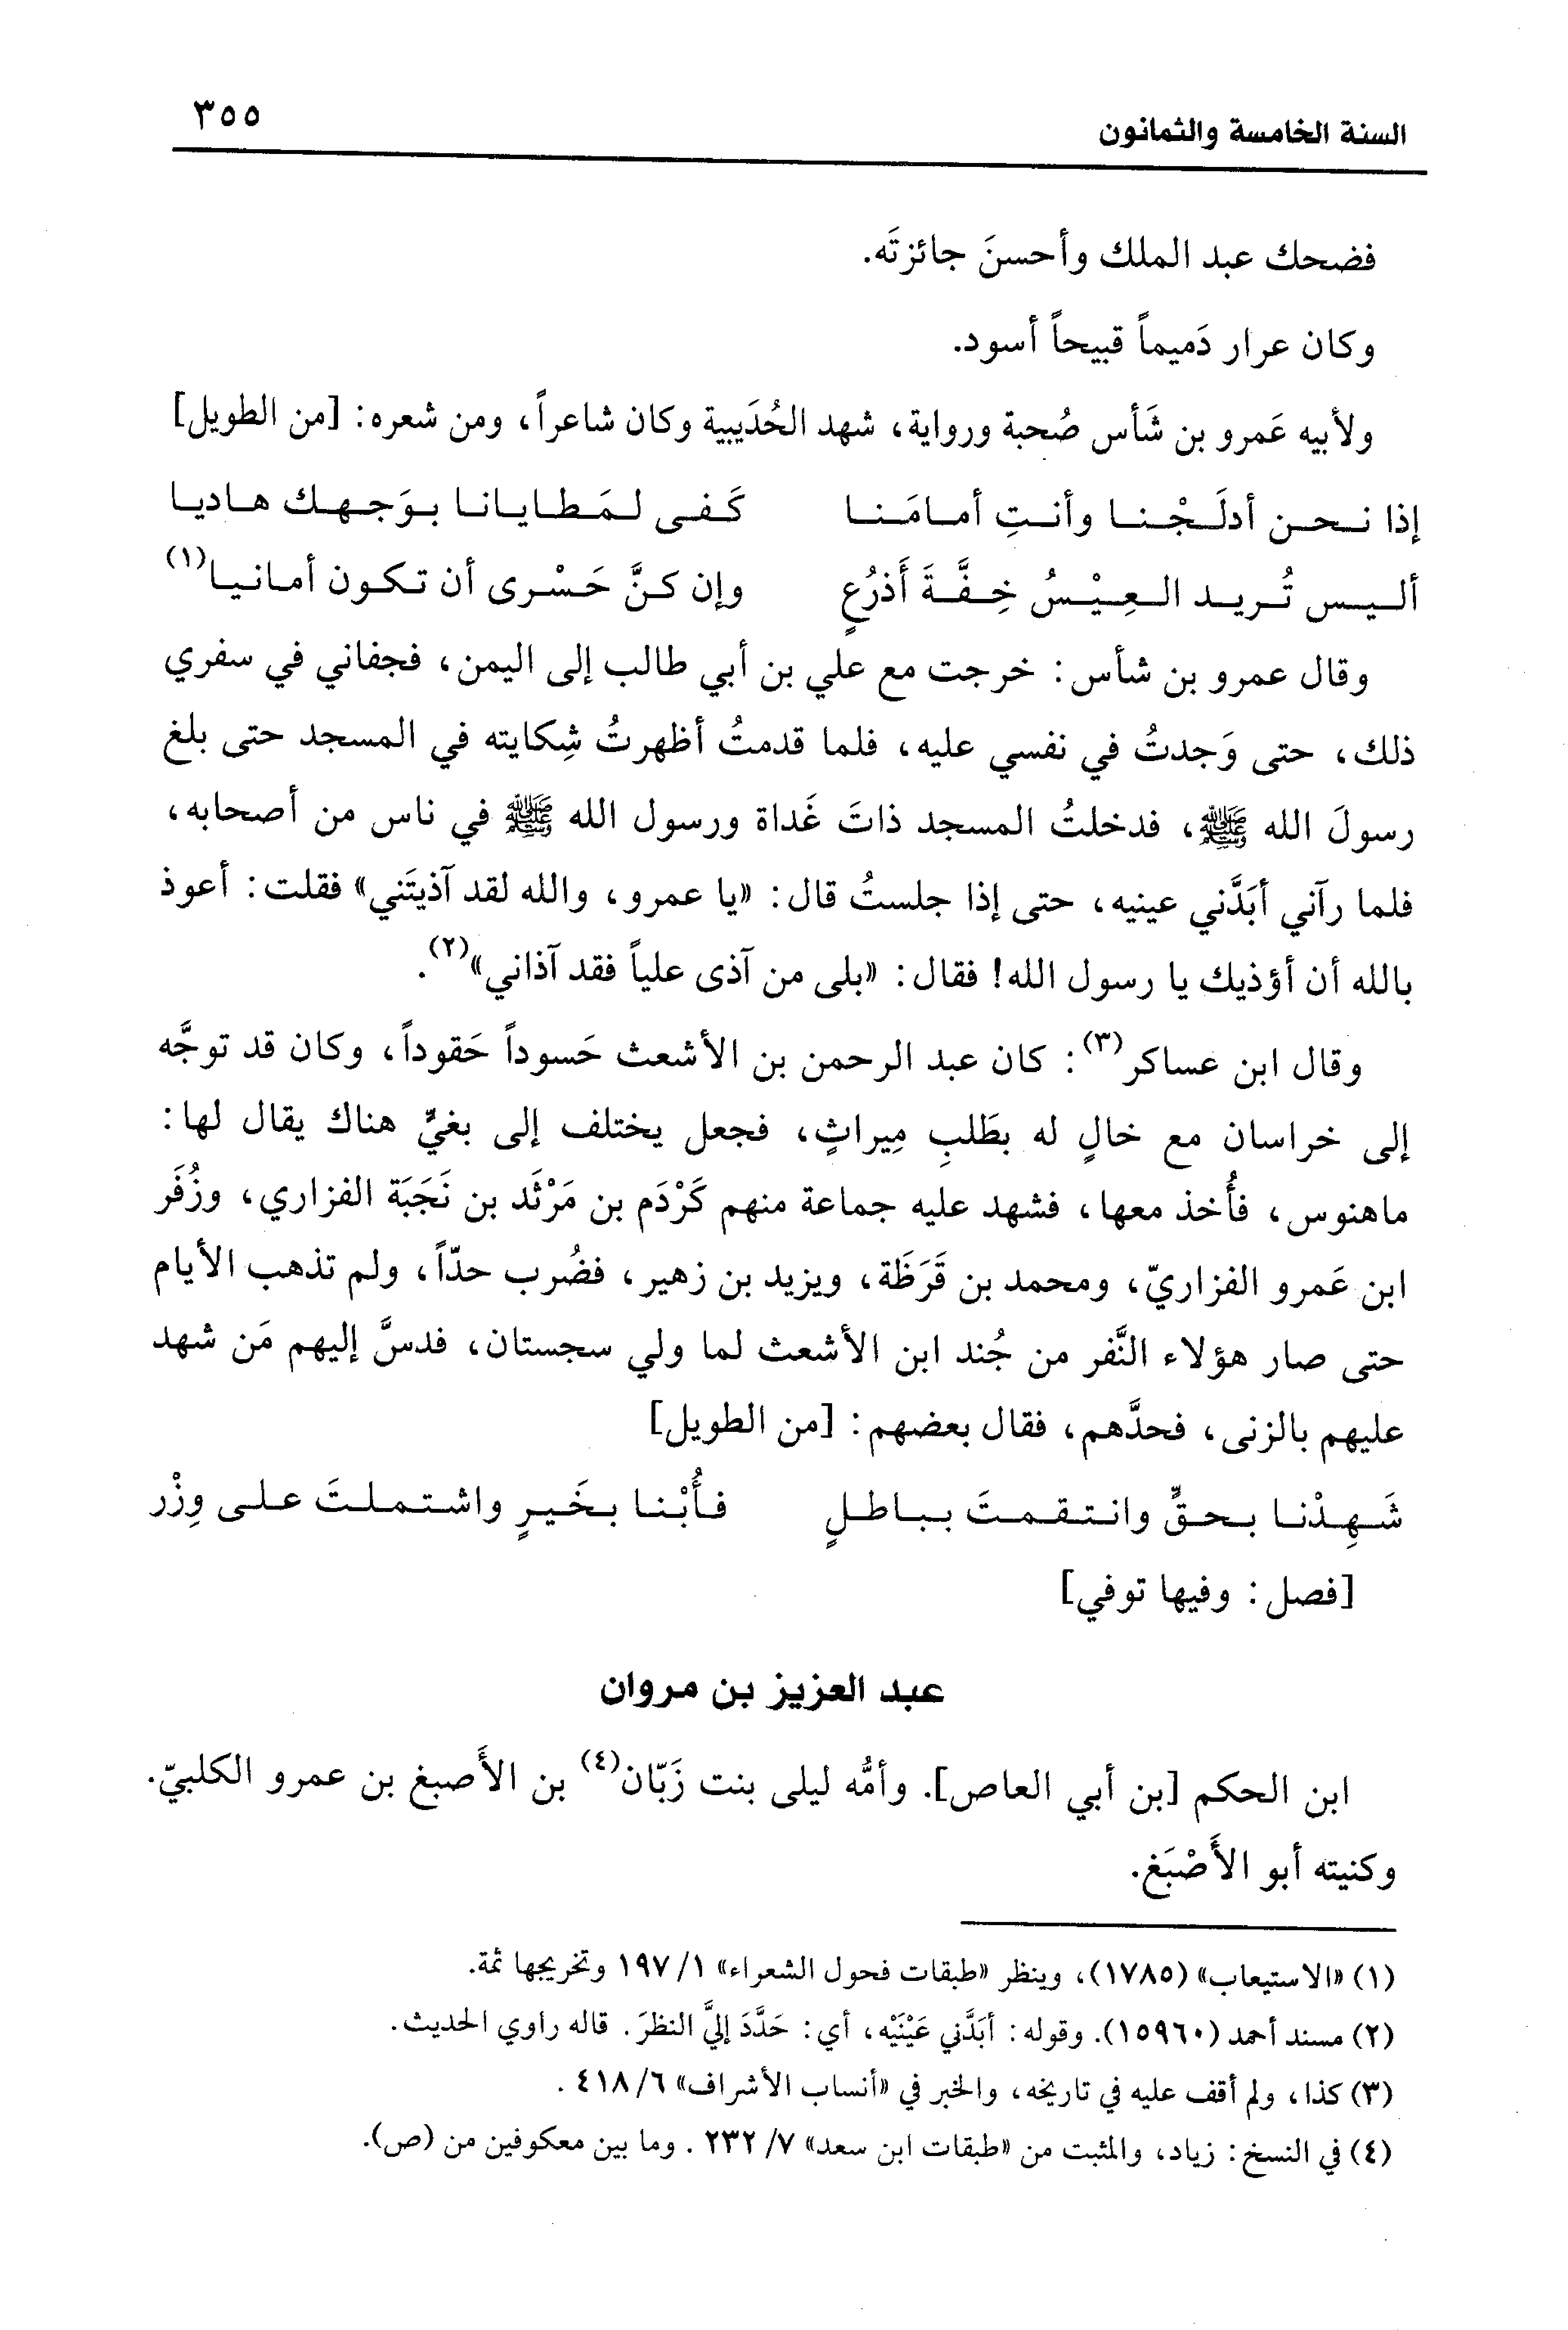 السنة الخامسة والثمانون ٣٥٥
فضحك عبد الملك وأحسنَ جائزتَه.
وكان عرار دَميماً قبيحاً أسود.
ولأبيه عَمرو بن شَأس صُحبة ورواية، شهد الحُدَيبية وكان شاعراً، ومن شعره: [من الطويل]
إذا نحن أدلَجْنا وأنتِ أمامَنا كَفى لمَطايانا بوَجهك هاديا
أليس تُريد العِيْسُ خِفَّةَ أَذرُعٍ وإن كنَّ حَسْرى أن تكون أمانيا(١)
وقال عمرو بن شأس: خرجت مع علي بن أبي طالب إلى اليمن، فجفاني في سفري
ذلك، حتى وَجدتُ في نفسي عليه، فلما قدمتُ أظهرتُ شِكايته في المسجد حتى بلغ
رسولَ الله ﷺ، فدخلتُ المسجد ذاتَ غَداة ورسول الله ﷺ في ناس من أصحابه،
فلما رآني أبَدَّني عينيه، حتى إذا جلستُ قال: «يا عمرو، والله لقد آذيتَني» فقلت: أعوذ
بالله أن أؤذيك يا رسول الله! فقال: «بلى من آذى علياً فقد آذاني»(٢).
وقال ابن عساكر(٣): كان عبد الرحمن بن الأشعث حَسوداً حَقوداً، وكان قد توجَّه
إلى خراسان مع خالٍ له بطَلبِ مِيراثٍ، فجعل يختلف إلى بغيٍّ هناك يقال لها:
ماهنوس، فأُخذ معها، فشهد عليه جماعة منهم كَرْدَم بن مَرْثَد بن نَجَبَة الفزاري، وزُفَر
ابن عَمرو الفزاريّ، ومحمد بن قَرَظَة، ويزيد بن زهير، فضُرب حدّاً، ولم تذهب الأيام
حتى صار هؤلاء النَّفر من جُند ابن الأشعث لما ولي سجستان، فدسَّ إليهم مَن شهد
عليهم بالزنى، فحدَّهم، فقال بعضهم: [من الطويل]
شَهِدْنا بحقٍّ وانتقمتَ بباطلٍ فأُبْنا بخَيرٍ واشتملتَ على وِزْر
[فصل: وفيها توفي]
عبد العزيز بن مروان
ابن الحكم [بن أبي العاص]. وأمُّه ليلى بنت زَبّان(٤) بن الأَصبغ بن عمرو الكلبيّ.
وكنيته أبو الأَصْبَغ.
(١) «الاستيعاب» (١٧٨٥)، وينظر «طبقات فحول الشعراء» ١/ ١٩٧ وتخريجها ثمة.
(٢) مسند أحمد (١٥٩٦٠). وقوله: أبَدَّني عَيْنَيْه، أي: حَدَّدَ إليَّ النظرَ. قاله راوي الحديث.
(٣) كذا، ولم أقف عليه في تاريخه، والخبر في «أنساب الأشراف» ٦/ ٤١٨.
(٤) في النسخ: زياد، والمثبت من «طبقات ابن سعد» ٧/ ٢٣٢. وما بين معكوفين من (ص).